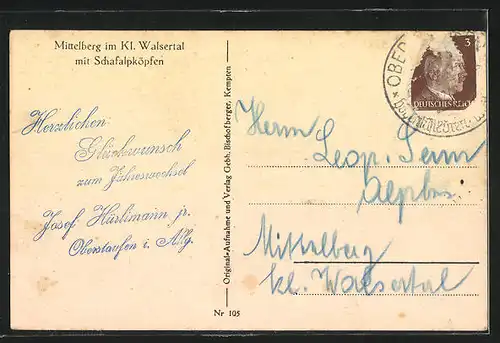 Mittelberg im Kl. Walsertal
mit Schafalpköpfen
Herzlichen
Glückwunsch
zum Jahreswechsel
Josef Hürlimann jr.
Oberstaufen i. Allg.
Original-Aufnahme und Verlag Gebh. Bischofberger, Kempten
Nr 105
3
DEUTSCHES REICH
Herrn
Leop.
Mittelberg
kl. Walsertal